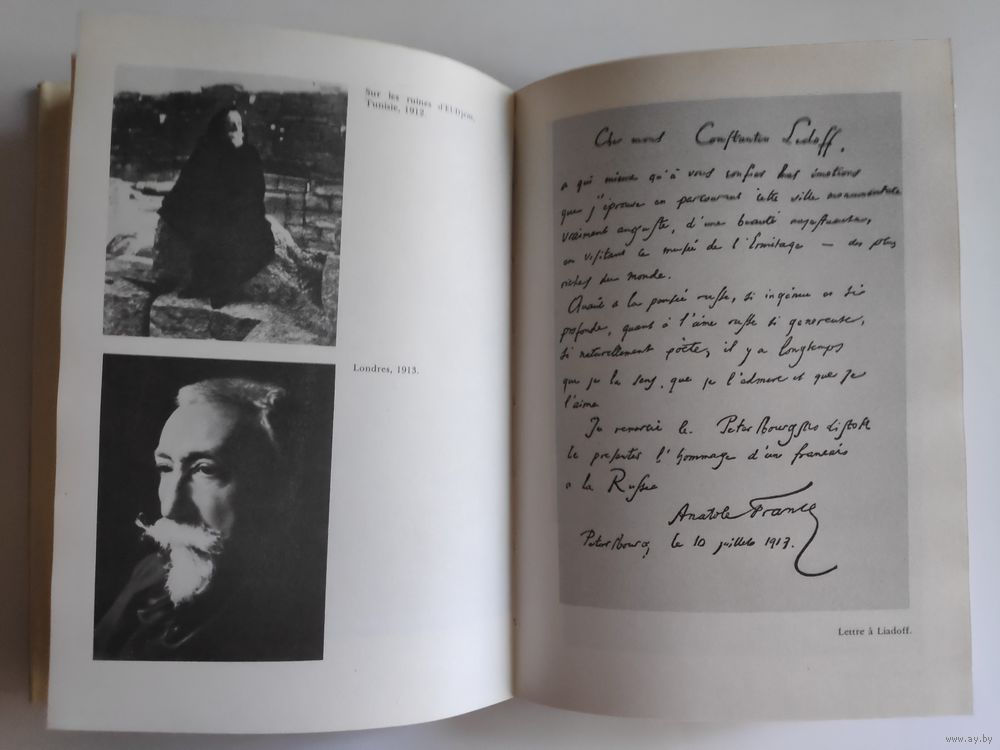 Sur les ruines d'El-Djem,
Tunisie, 1912.
Londres, 1913.
Cher mons Constantin Liadoff,
a qui mieux qu'à vous confier les émotions
que j'éprouve en parcourant cette ville monumentale
vraiment auguste, d'une beauté majestueuse,
en visitant le musée de l'Ermitage — des plus
riches du monde.
Quant a la pensée russe, si ingénue et si
profonde, quant à l'âme russe si genereuse,
si naturellement poète, il y a longtemps
que je la sens, que je l'admire et que je
l'aime
Je remercie le Petersbourgsky Listok
de presenter l'hommage d'un francais
a la Russie
Anatole France
Petersbourg, le 10 juillet 1913.
Lettre à Liadoff.
www.ay.by